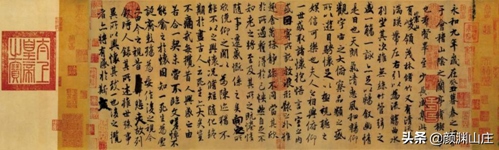 永和九年歲在癸丑暮春之初會
于會稽山陰之蘭亭脩禊事
也群賢畢至少長咸集此地
有崇山峻領茂林脩竹又有清流激
湍暎帶左右引以為流觴曲水
列坐其次雖無絲竹管弦之
盛一觴一詠亦足以暢敘幽情
是日也天朗氣清惠風和暢仰
觀宇宙之大俯察品類之盛
所以遊目騁懷足以極視聽之
娛信可樂也夫人之相與俯仰
一世或取諸懷抱悟言一室之內
或因寄所託放浪形骸之外雖
趣舍萬殊靜躁不同當其欣
於所遇蹔得於己快然自足不
知老之將至及其所之既惓情
隨事遷感慨係之矣向之所
欣俛仰之閒以為陳迹猶不
能不以之興懷況脩短隨化終
期於盡古人云死生亦大矣豈
不痛哉每攬昔人興感之由
若合一契未嘗不臨文嗟悼不
能喻之於懷固知一死生為虛
誕齊彭殤為妄作後之視今
亦由今之視昔悲夫故列
敘時人錄其所述雖世殊事
異所以興懷其致一也後之攬
者亦將有感於斯文
头条 @颜渊山庄